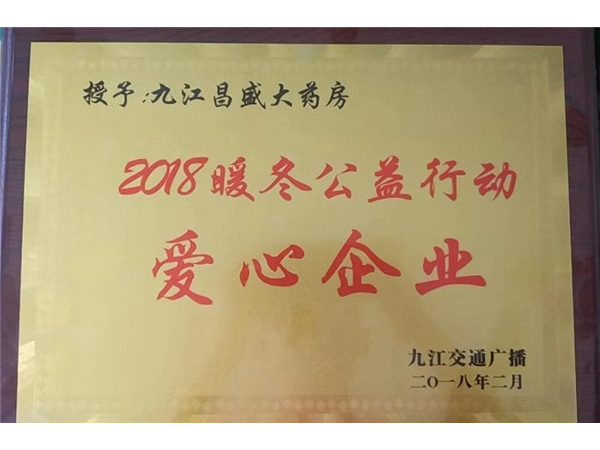 授予:九江昌盛大药房
2018暖冬公益行动
爱心企业
九江交通广播
二〇一八年二月